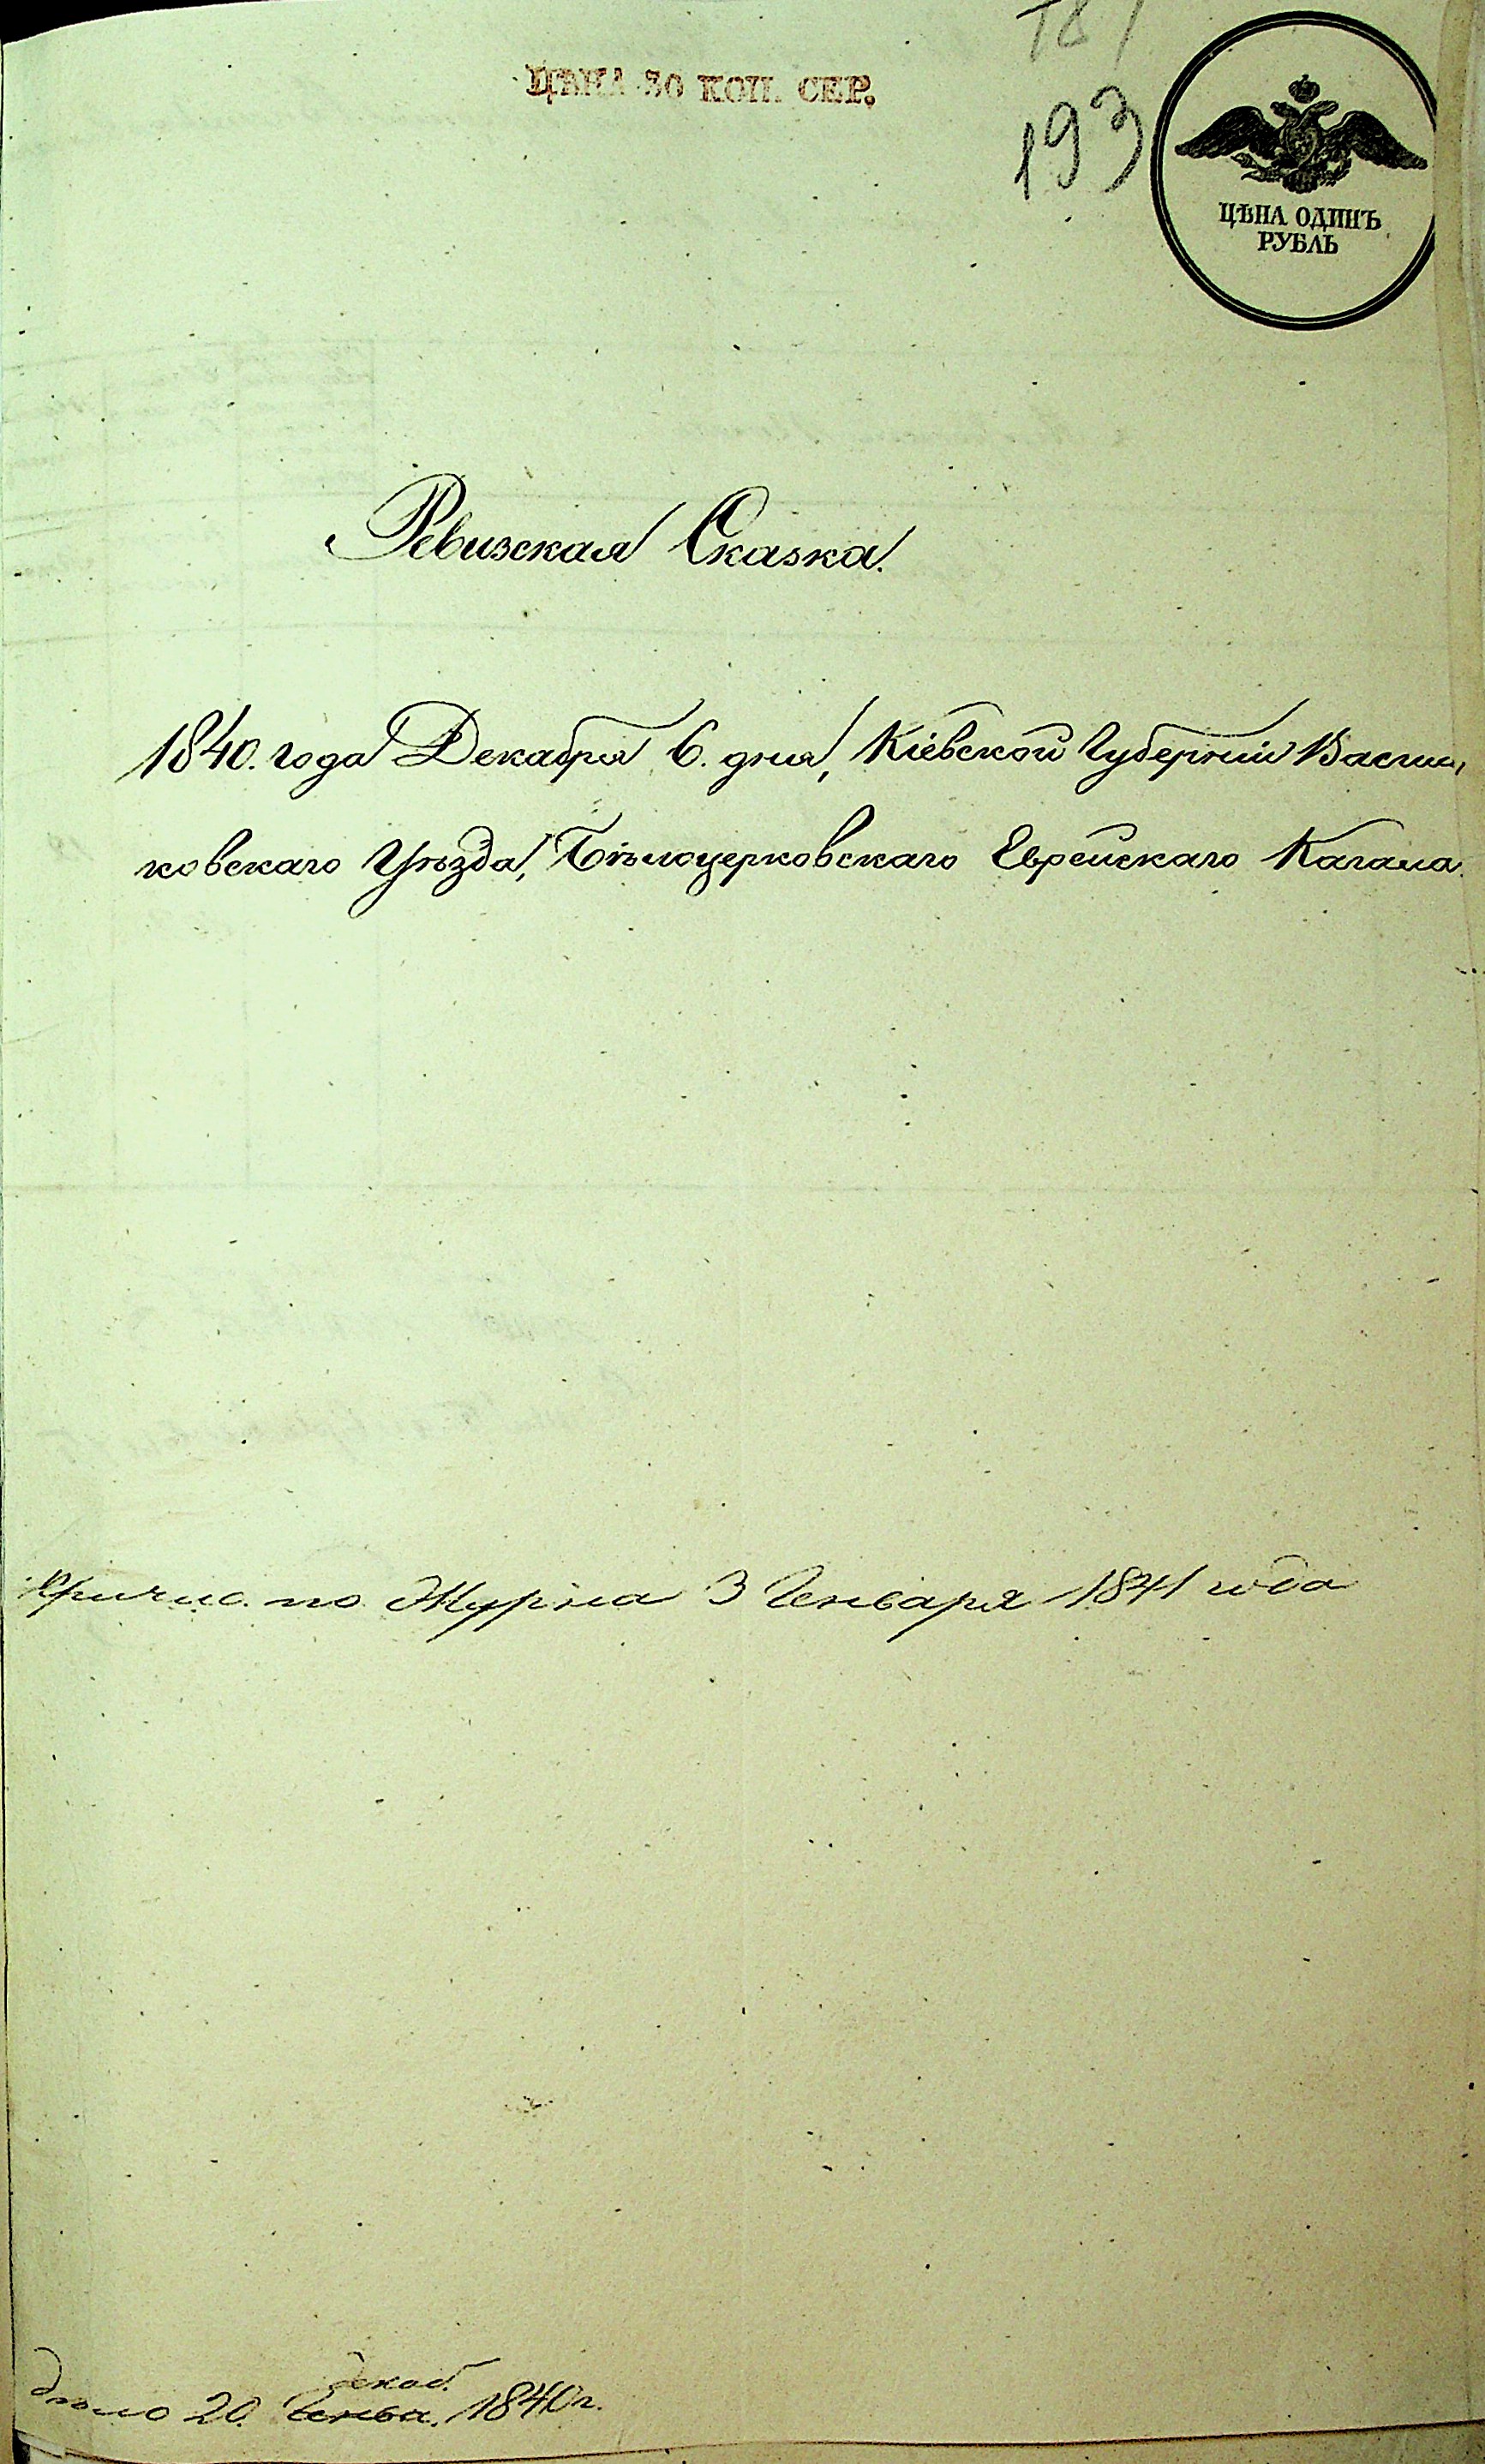 ЦѢНА 30 КОП. СЕР.
193
ЦѢНА ОДИНЪ
РУБЛЬ
Ревизская Сказка.
1840. года Декабря 6. дня, Кіевской Губерніи Васил,
ковскаго Уѣзда, Бѣлоцерковскаго Еврейскаго Кагала.
Причис. по Журна 3 Генваря 1841 года
декаб.
дѣло 20. Генва. 1840 г.